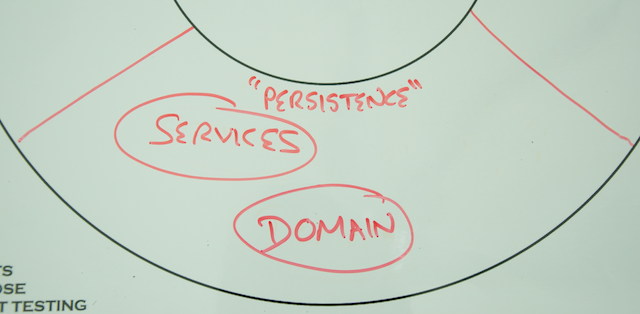 "PERSISTENCE"
SERVICES
DOMAIN
T TESTING